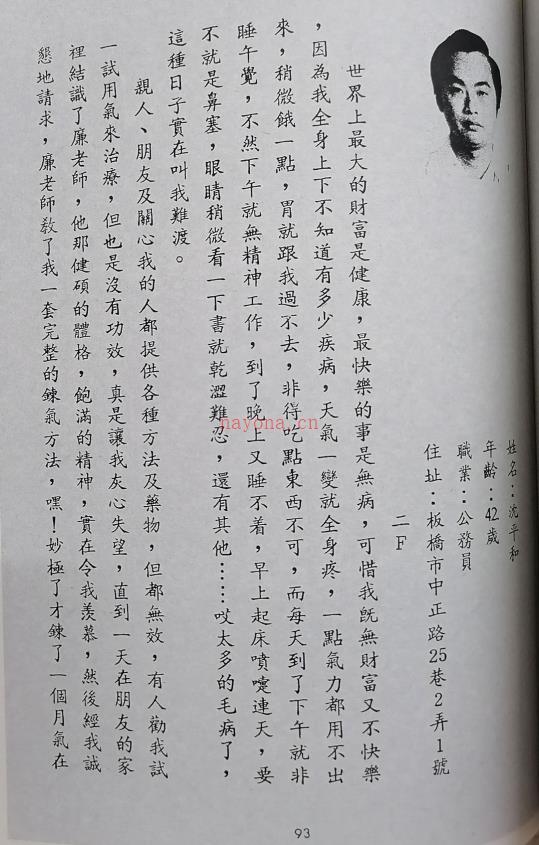 姓名：沈平和
年齡：42歲
職業：公務員
住址：板橋市中正路25巷2弄1號
二F
世界上最大的財富是健康，最快樂的事是無病，可惜我既無財富又不快樂
，因為我全身上下不知道有多少疾病，天氣一變就全身疼，一點氣力都用不出
來，稍微餓一點，胃就跟我過不去，非得吃點東西不可，而每天到了下午就非
睡午覺，不然下午就無精神工作，到了晚上又睡不着，早上起床噴嚏連天，要
不就是鼻塞，眼睛稍微看一下書就乾澀難忍，還有其他……哎太多的毛病了，
這種日子實在叫我難渡。
親人、朋友及關心我的人都提供各種方法及藥物，但都無效，有人勸我試
一試用氣來治療，但也是沒有功效，真是讓我灰心失望，直到一天在朋友的家
裡結識了廉老師，他那健碩的體格，飽滿的精神，實在令我羨慕，然後經我誠
懇地請求，廉老師教了我一套完整的鍊氣方法，嘿！妙極了才鍊了一個月氣在
nayona.cn
93